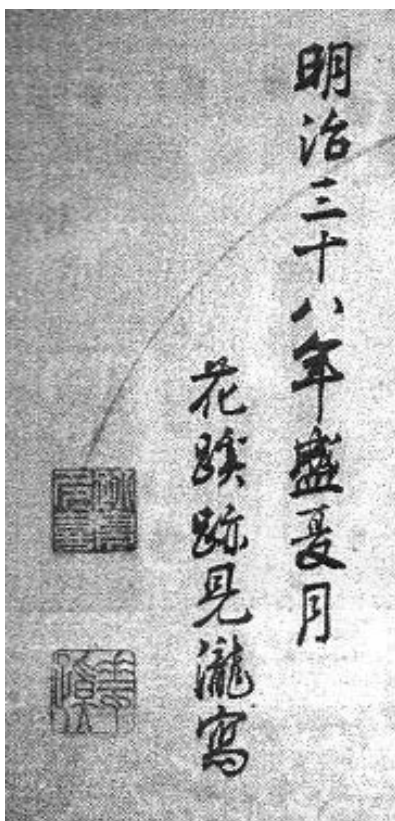 明治三十八年盛夏月
花蹊跡見瀧寫